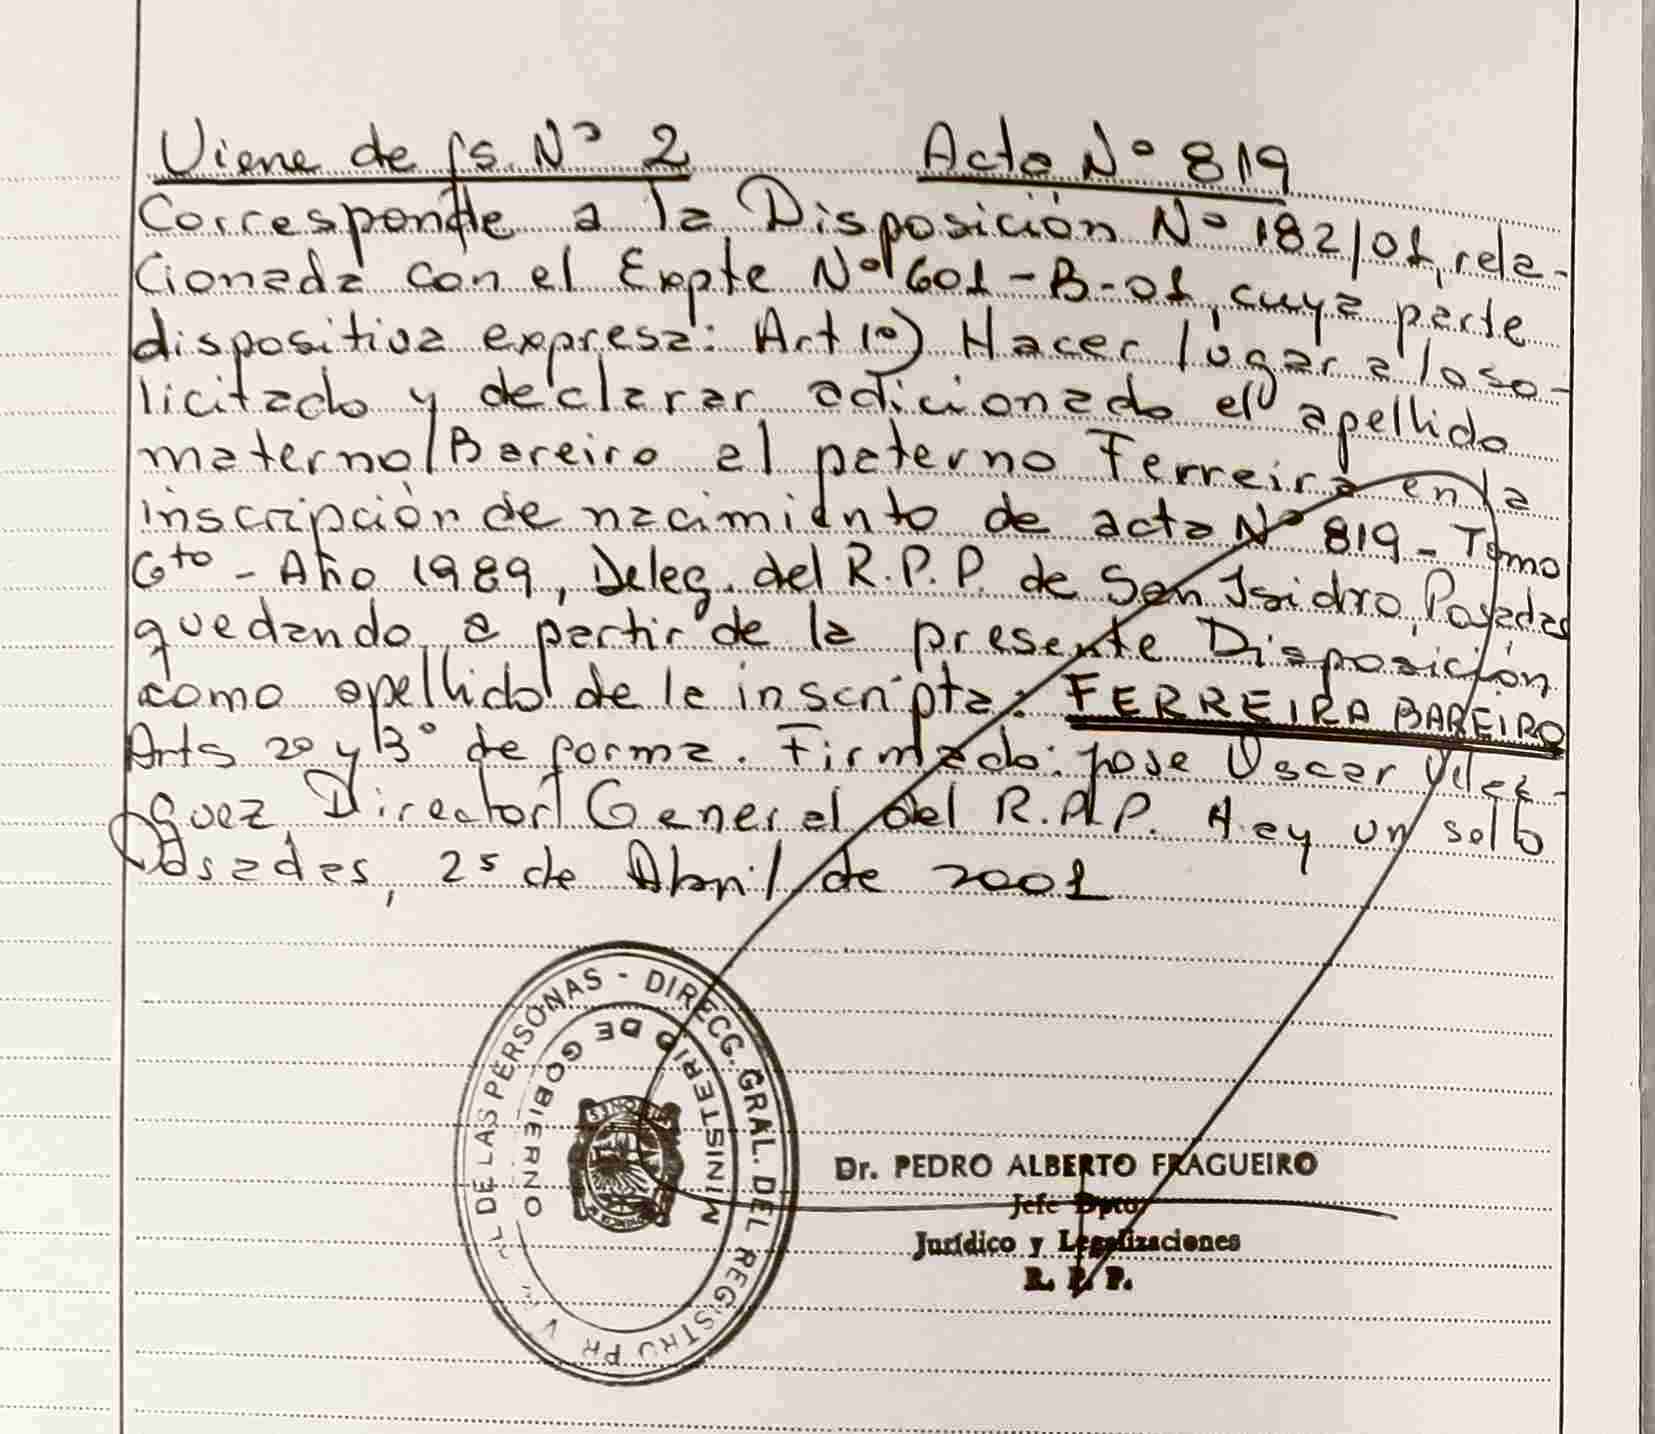 Viene de fs. Nº 2 Acta Nº 819
Corresponde a la Disposición Nº 182/01, rela-
cionada con el Expte Nº 601-B-01, cuya parte
dispositiva expresa: Art 1º) Hacer lugar a lo so-
licitado y declarar adicionado el apellido
materno Bareiro al paterno Ferreira en la
inscripción de nacimiento de acta Nº 819 - Tomo
6to - Año 1989, Deleg. del R.P.P. de San Isidro, Posadas
quedando a partir de la presente Disposición
como apellido de la inscripta: FERREIRA BAREIRO
Arts 2º y 3º de forma. Firmado: Jose Oscar
Director General del R.P.P. Hay un sello
Posadas, 25 de Abril de 2001
DIRECC. GRAL. DEL REGISTRO DE LAS PERSONAS -
MINISTERIO DE GOBIERNO
Dr. PEDRO ALBERTO FRAGUEIRO
Jefe Dpto
Jurídico y Legalizaciones
R. P. P.